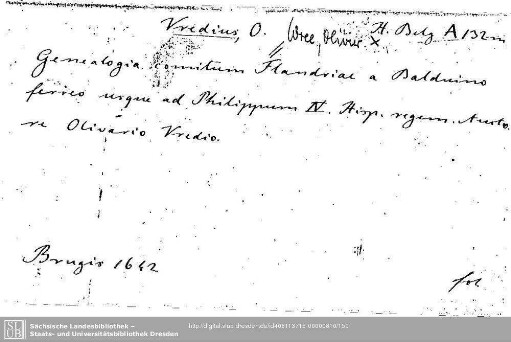 Vredius, O. (Wree, Olivier x H. Belg A 132m
Genealogia Comitum Flandriae a Balduino
ferreo usque ad Philippum IV. Hisp. regem. Aucto-
re Olivario Vredio.
Brugis 1642
fol
Sächsische Landesbibliothek –
Staats- und Universitätsbibliothek Dresden